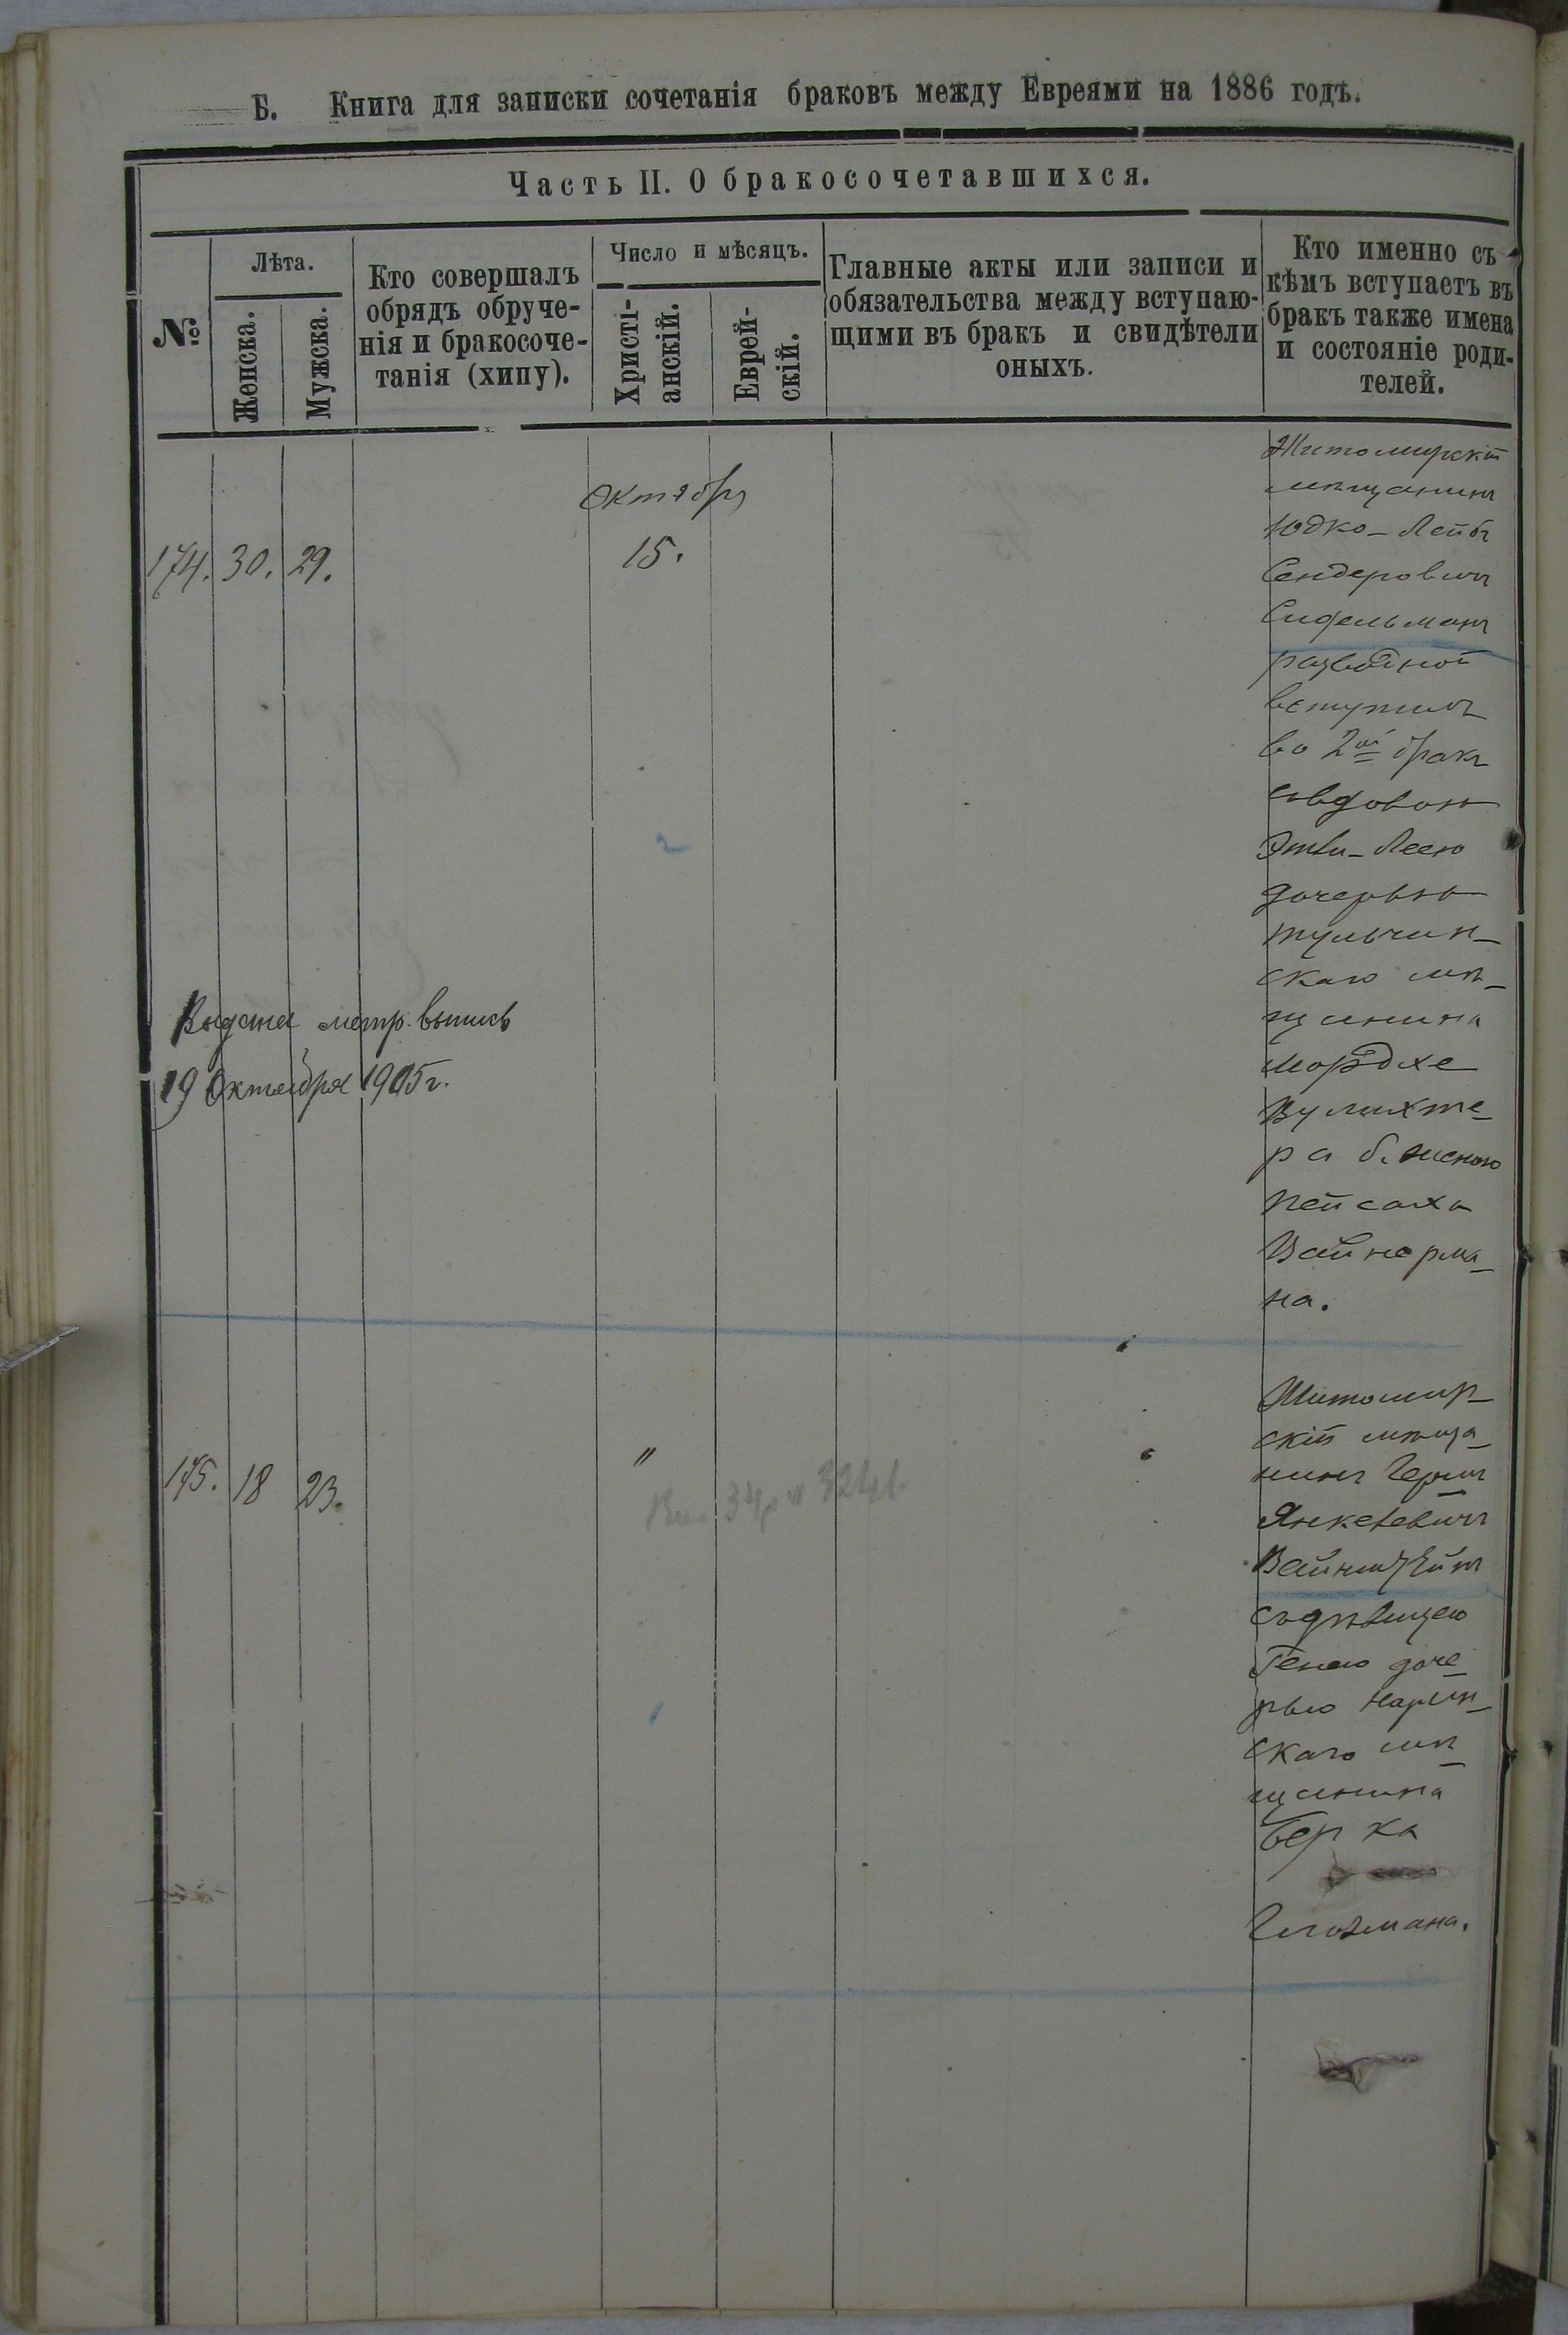 Б. Книга для записки сочетанія браковъ между Евреями на 1886 годъ.
Часть II. О бракосочетавшихся.
№
Лѣта.
Женска.
Мужска.
Кто совершалъ
обрядъ обруче-
нія и бракосоче-
танія (хипу).
Число и мѣсяцъ.
Христі-
анскій.
Еврей-
скій.
Главные акты или записи и
обязательства между вступаю-
щими въ бракъ и свидѣтели
оныхъ.
Кто именно съ
кѣмъ вступаетъ въ
бракъ также имена
и состояніе роди-
телей.
Октября
174. 30. 29. 15.
Житомирскій
мѣщанинъ
Юдко-Лейбъ
Сендеровичъ
разводной
вступилъ
во 2ой бракъ
съ вдовою
Лсею
дочерью
тульчин-
скаго мѣ-
щанина
Мордхе
Вулихте-
ра б. женою
Пейсаха
Вайнерма-
на.
Выдана метр. выпись
19 Октября 1905 г.
175. 18 23. "
Житомир-
скій мѣща-
нинъ Гершъ
Янкелевичъ
съ дѣвицею
Генею доче-
рью
скаго мѣ-
щанина
Берка
Глозмана.